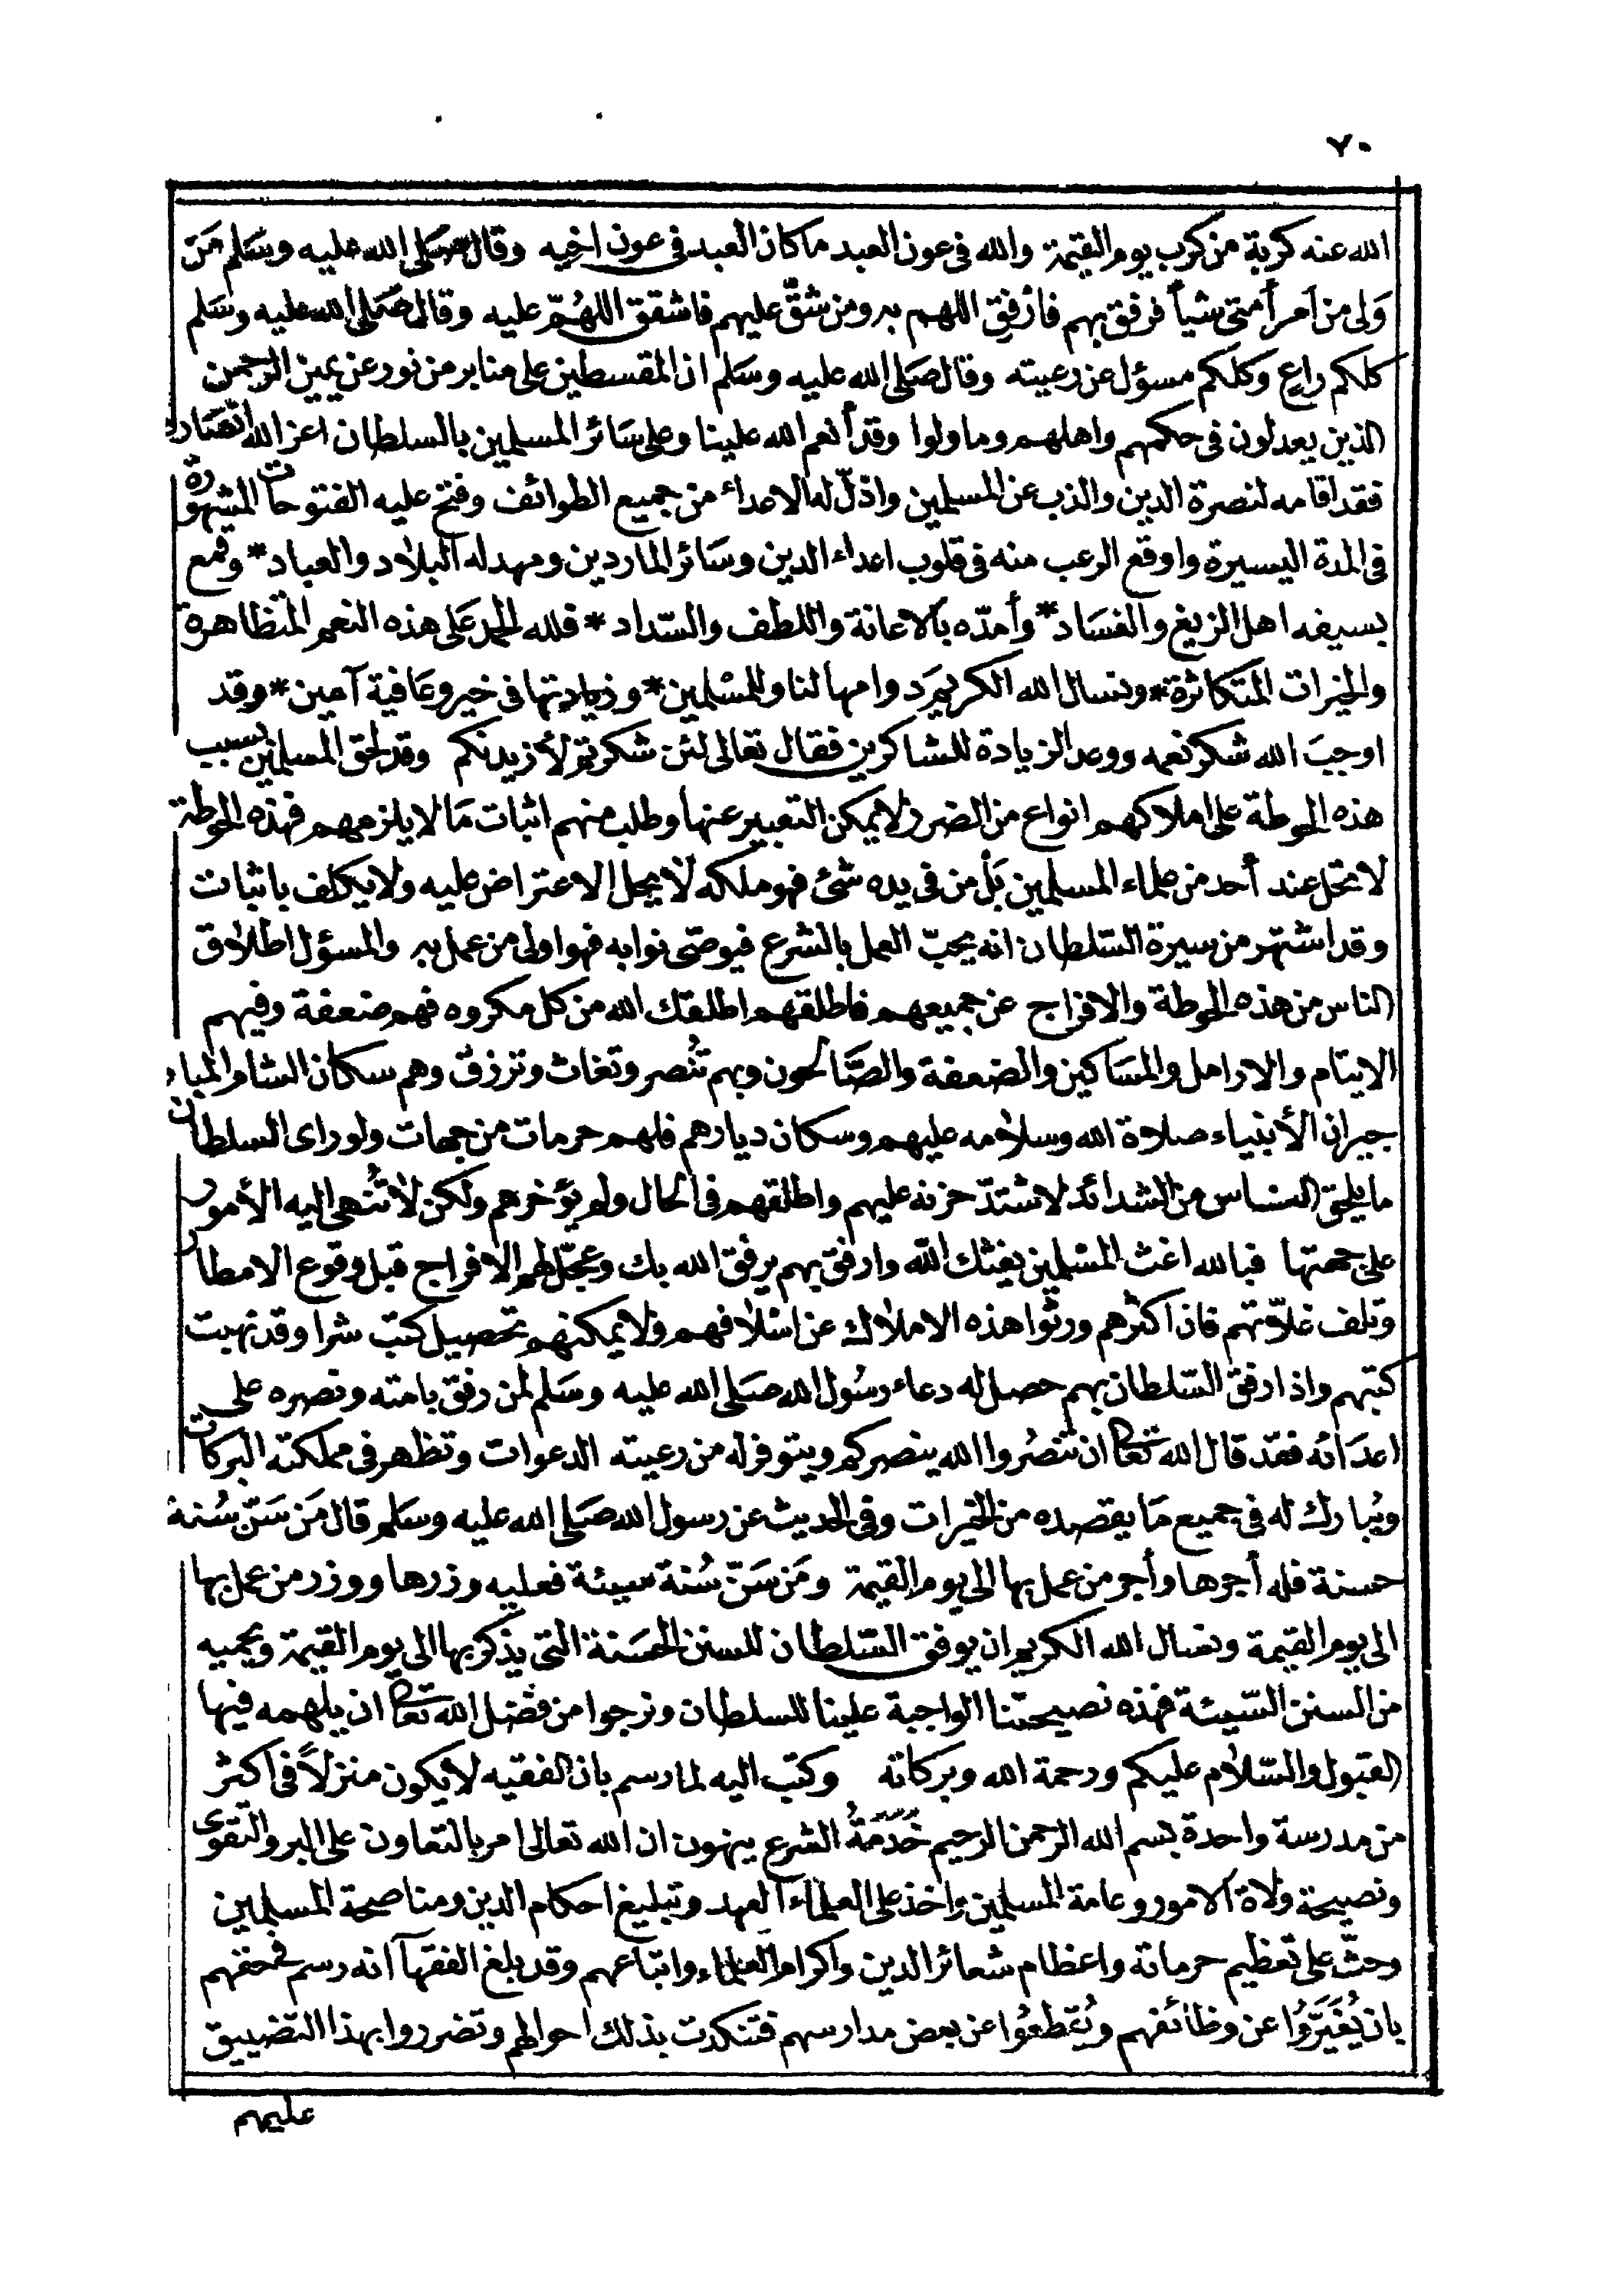 ٧٠
الله عنه كربة من كرب يوم القيمة والله فى عون العبد ما كان العبد فى عون اخيه وقال صلى الله عليه وسلم من
ولى من أمر أمتى شيأ فرفق بهم فارفق اللهم به ومن شقّ عليهم فاشقق اللهمّ عليه وقال صلى الله عليه وسلم
كلكم راع وكلكم مسؤل عن رعيته وقال صلى الله عليه وسلم ان المقسطين على منابر من نور عن يمين الرحمن
الذين يعدلون فى حكمهم واهلهم وما ولوا وقد أنعم الله علينا وعلى سائر المسلمين بالسلطان اعز الله انصاره
فقد اقامه لنصرة الدين والذب عن المسلمين واذلّ له الاعداء من جميع الطوائف وفتح عليه الفتوحات المشهورة
فى المدة اليسيرة واوقع الرعب منه فى قلوب اعداء الدين وسائر الماردين ومهد له البلاد والعباد * وقمع
بسيفه اهل الزيغ والفساد * وأمدّه بالاعانة واللطف والسّداد * فلله الحمد على هذه النعم المتظاهرة
والخيرات المتكاثرة * ونسال الله الكريم دوامها لنا وللمسلمين * وزيادتها فى خير وعافية آمين * وقد
اوجب الله شكر نعمه ووعد الزيادة للشاكرين فقال تعالى لئن شكرتم لأزيدنكم وقد لحق المسلمين بسبب
هذه الحوطة على املاكهم انواع من الضرر لا يمكن التعبير عنها وطلب منهم اثبات ما لا يلزمهم فهذه الحوطة
لا تحل عند أحد من علماء المسلمين بل من فى يده شئ فهو ملكه لا يحل الاعتراض عليه ولا يكلف باثبات
وقد اشتهر من سيرة السّلطان انه يحبّ العمل بالشرع فيوصى نوابه فهو اولى من عمل به والمسؤل اطلاق
الناس من هذه الحوطة والافراج عن جميعهم فاطلقهم اطلقك الله من كل مكروه فهم ضعفة وفيهم
الايتام والارامل والمساكين والضعفة والصّالحون وبهم تُنصر وتغاث وترزق وهم سكان الشام المبارك
جيران الأنبياء صلاة الله وسلامه عليهم وسكان ديارهم فلهم حرمات من جهات ولو راى السلطان
ما يلحق الناس من الشدائد لاشتدّ حزنه عليهم واطلقهم فى الحال ولم يؤخرهم ولكن لا تُنهى اليه الأمور
على جهتها فبالله اغث المسلمين يغثك الله وارفق بهم يرفق الله بك وعجّل لهم الافراج قبل وقوع الامطار
وتلف غلّاتهم فان اكثرهم ورثوا هذه الاملاك عن اسلافهم ولا يمكنهم تحصيل كتب شرا وقد نهبت
كتبهم واذا رفق السّلطان بهم حصل له دعاء رسول الله صلى الله عليه وسلم لمن رفق بامته ونصره على
اعدائه فقد قال الله تعا ان تنصروا الله ينصركم ويتوفر له من رعيته الدعوات وتظهر فى مملكته البركات
ويُبارك له فى جميع ما يقصده من الخيرات وفى الحديث عن رسول الله صلى الله عليه وسلم قال مَن سَنّ سُنة
حسنة فله أجرها وأجر من عمل بها الى يوم القيمة ومَن سَنّ سُنة سيئة فعليه وزرها ووزر من عمل بها
الى يوم القيمة ونسال الله الكريم ان يوفق السّلطان للسنن الحسنة التى يذكر بها الى يوم القيمة ويحميه
من السنن السّيئة فهذه نصيحتنا الواجبة علينا للسلطان ونرجوا من فضل الله تعا ان يلهمه فيها
القبول والسّلام عليكم ورحمة الله وبركاته وكتب اليه لما رسم بان الفقيه لا يكون منزلاً فى اكثر
من مدرسة واحدة بسم الله الرحمن الرحيم خَدَمَةُ الشرع ينهون ان الله تعالى امر بالتعاون على البر والتقوى
ونصيحة ولاة الامور وعامة المسلمين واخذ على العلماء العهد وتبليغ احكام الدين ومناصحة المسلمين
وحثّ على تعظيم حرماته واعظام شعائر الدين واكرام العلماء واتباعهم وقد بلغ الفقهآ انه رسم فى حقهم
بان يُغَيَّرُوا عن وظائفهم ويُقطعُوا عن بعض مدارسهم فتنكدت بذلك احوالهم وتضرروا بهذا التضييق
عليهم